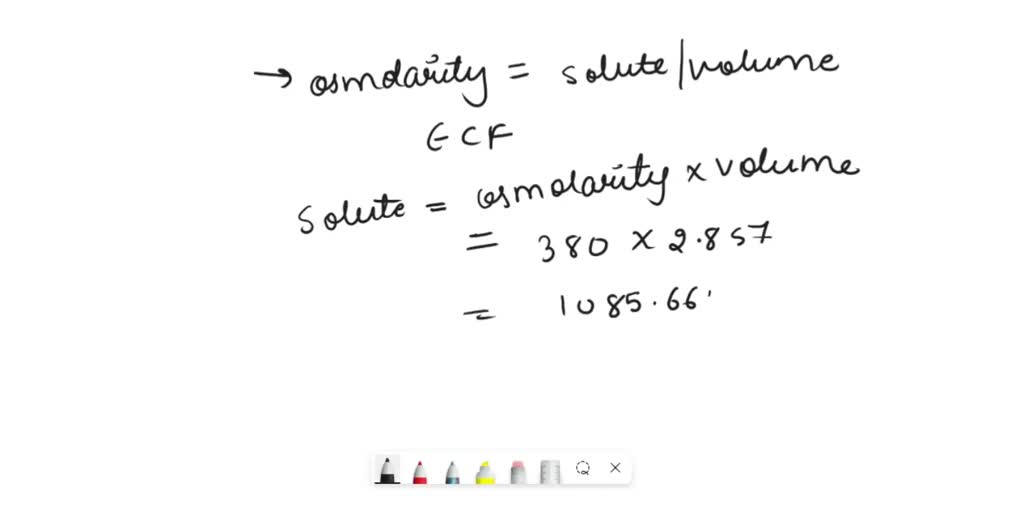 → osmolarity = solute/volume
ECF
solute = osmolarity × volume
= 380 × 2.857
= 1085.66